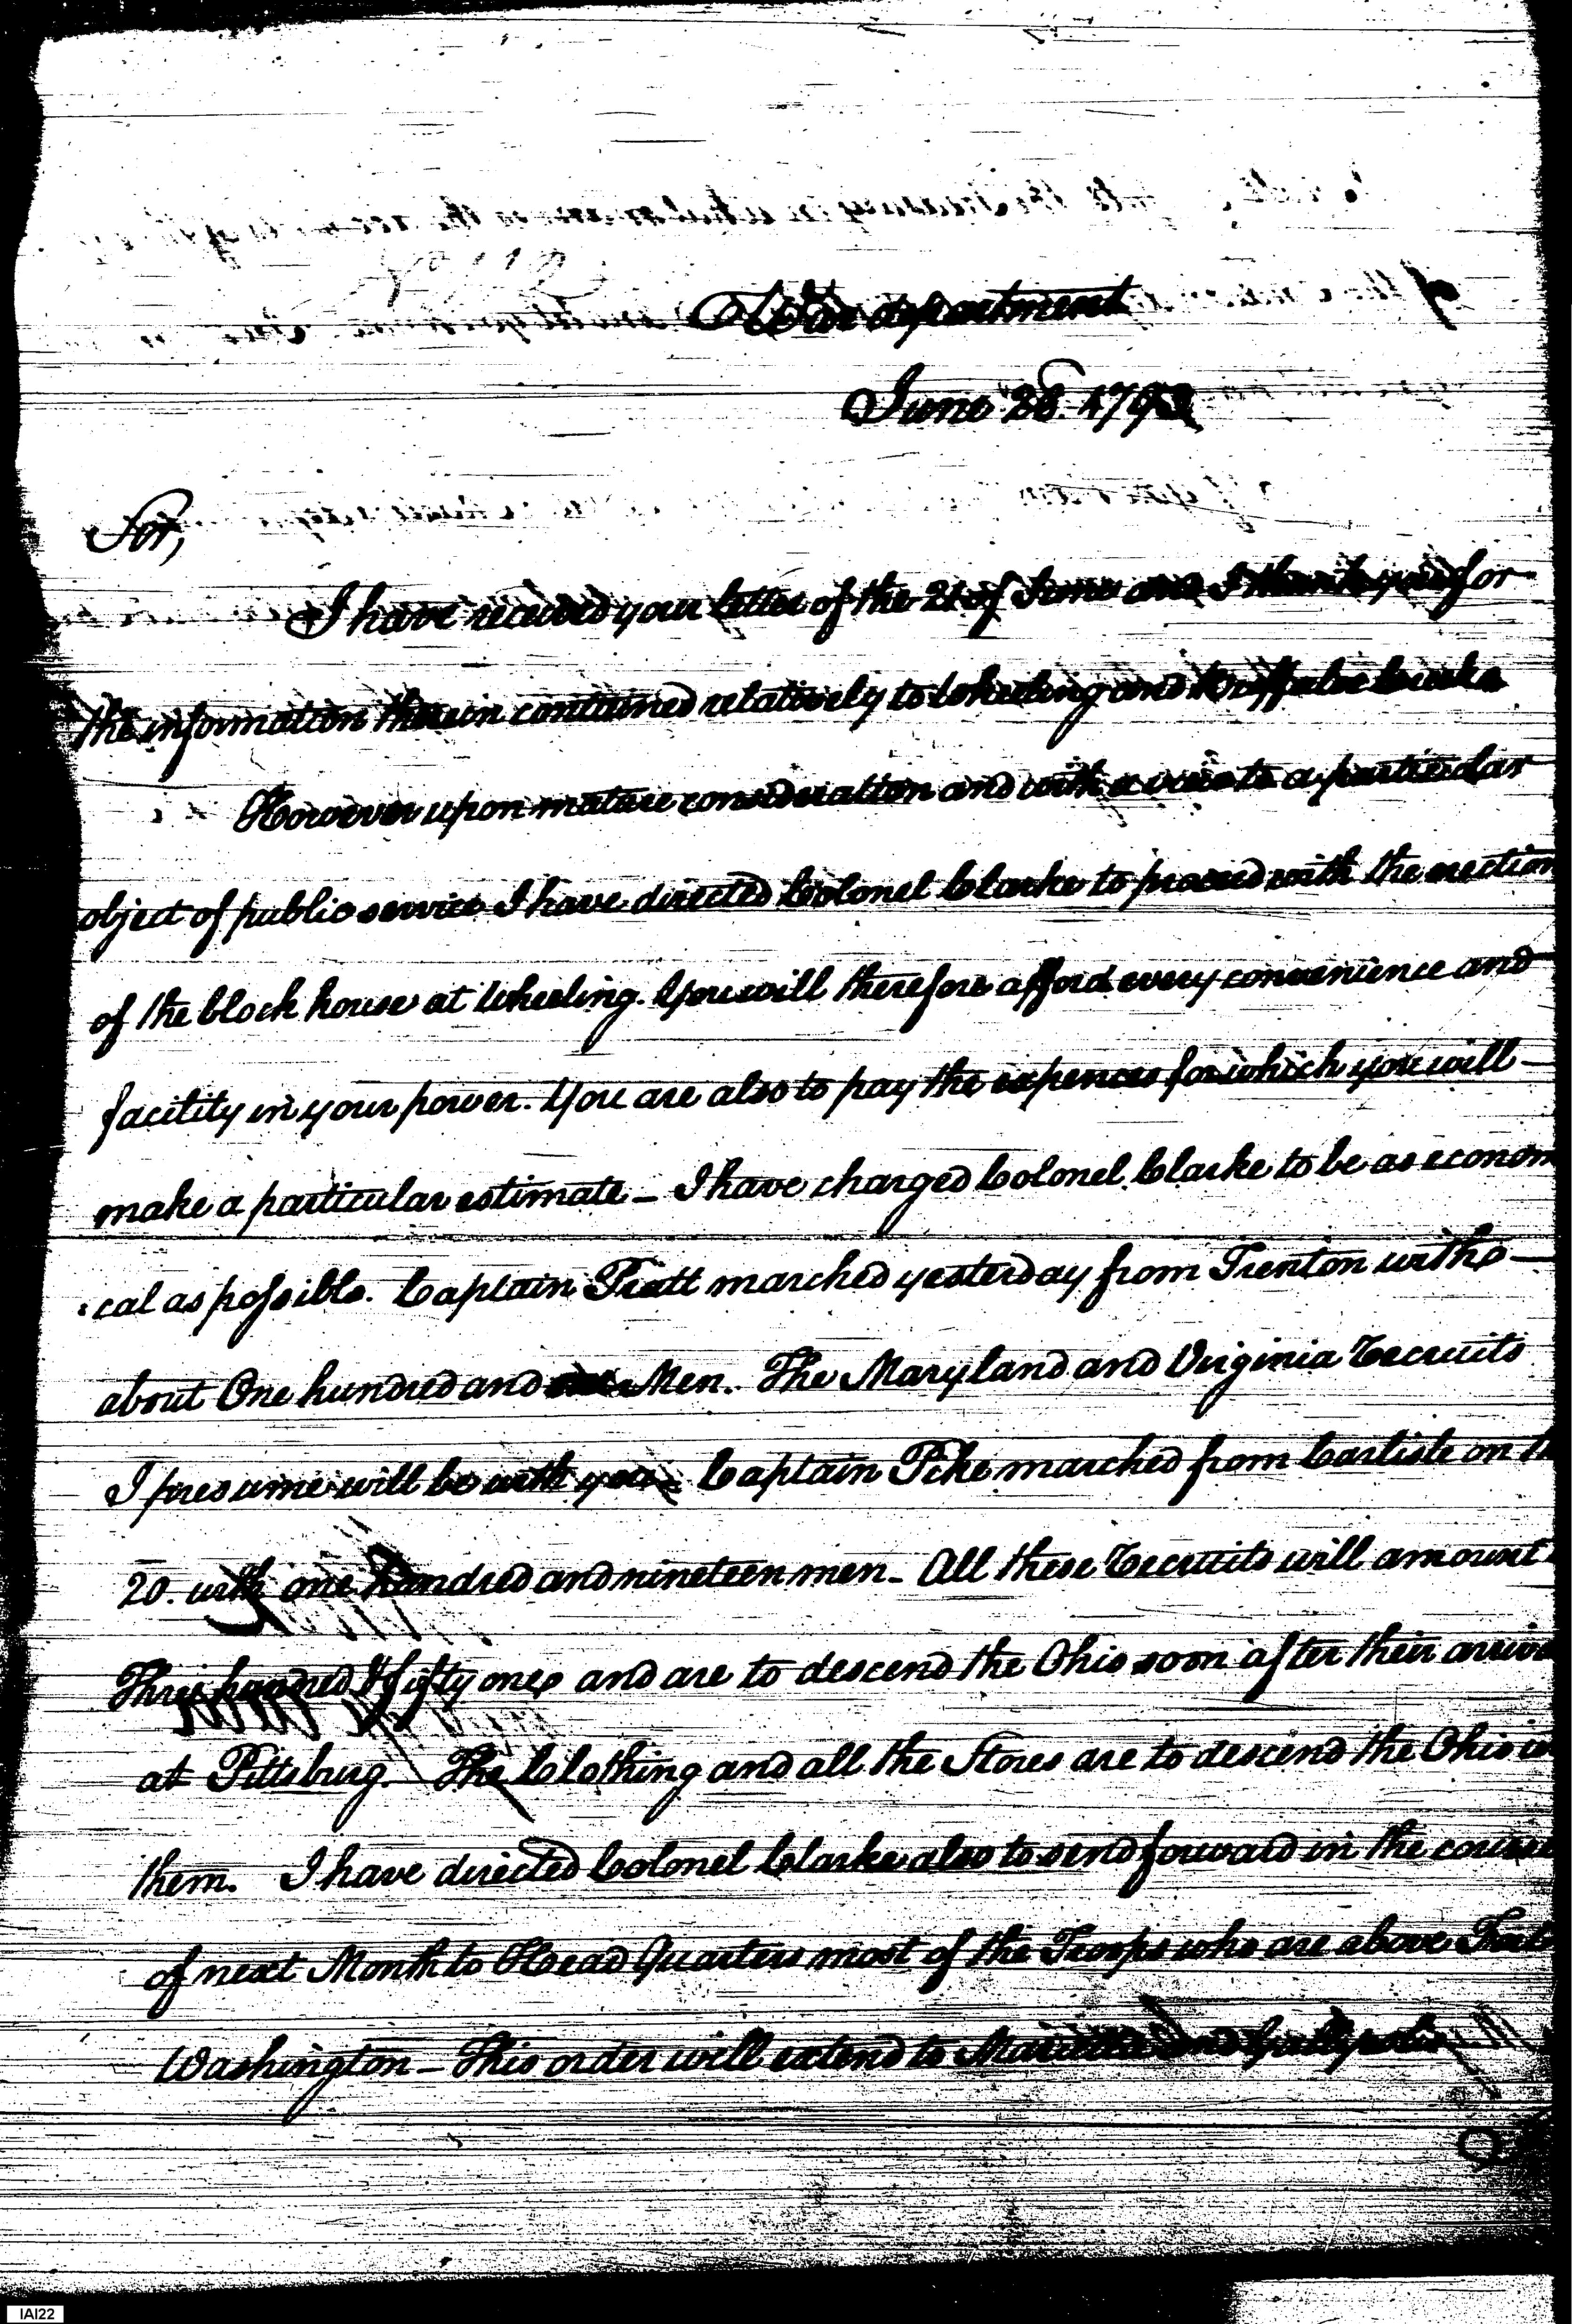 War department
June 28. 1793
Sir,
I have received your letter of the 21 of June and I thank you for
the information therein contained relatively to Wheeling and Buffaloe Creek
However upon mature consideration and with a view to a particular
object of public service I have directed Colonel Clarke to proceed with the erection
of the block house at Wheeling. You will therefore afford every convenience and
facility in your power. You are also to pay the expences for which you will
make a particular estimate – I have charged Colonel Clarke to be as econom
:cal as possible. Captain Pratt marched yesterday from Trenton with
about One hundred and Men. The Maryland and Virginia Recruits
I presume will be with you. Captain Pike marched from Carlisle on
20. with one hundred and nineteen men – All these Recruits will amount
Three hundred & fifty one and are to descend the Ohio soon after their arriva
at Pittsburg. The Clothing and all the Stores are to descend the Ohio
them. I have directed Colonel Clarke also to send forward in the course
of next Month to Head Quarters most of the Troops who are above Fort
Washington – This order will extend to Marietta and Gallipolis
IAI22